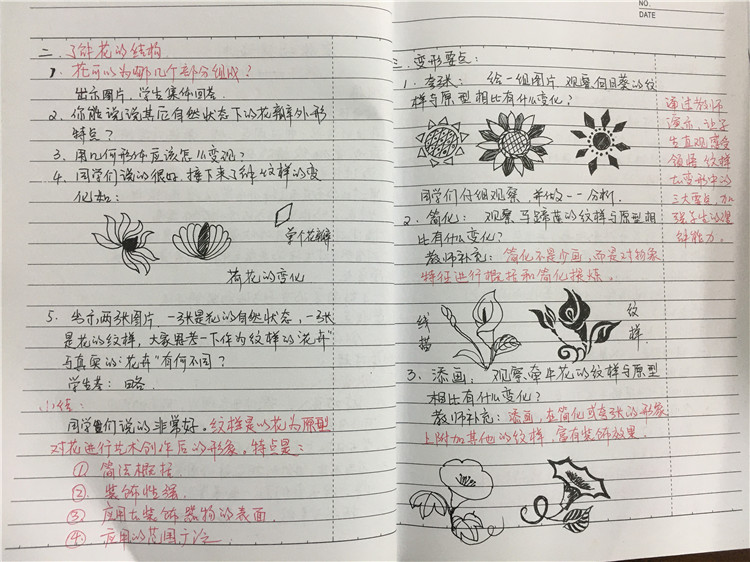 二、了解花的结构
1. 花可以为哪几个部分组成？
出示图片，学生集体回答.
2. 你能说说其后自然状态下的花瓣外形
特点？
3. 用几何形体应该怎么变现？
4. 同学们说的很好，接下来了解纹样的变
化和：
单个花瓣
荷花的变化
5. 出示两张图片，一张是花的自然状态，一张
是花的纹样，大家思考一下作为纹样的“花卉”
与真实的“花卉”有何不同？
学生答：回答.
小结：
同学们说的非常好。纹样是以花为原型
对花进行艺术创作后的形象。特点是：
① 简洁概括
② 装饰性强.
③ 应用在装饰器物的表面.
④ 应用的范围广泛.
NO.
DATE
三、变形要点：
1. 夸张： 给一组图片，观察向日葵的纹
样与原型相比有什么变化？
同学们仔细观察，并做一一分析.
2. 简化： 观察马蹄莲的纹样与原型相
比有什么变化？
教师补充：简化不是少画，而是对物象
特征进行概括和简化提炼。
线描
纹样
3. 添画： 观察牵牛花的纹样与原型
相比有什么变化？
教师补充：添画，在简化或夸张的形象
上附加其他的纹样，富有装饰效果.
通过教师
演示，让学
生直观感受
领悟纹样
在变形中的
三大要点，加
强学生的理
解能力。